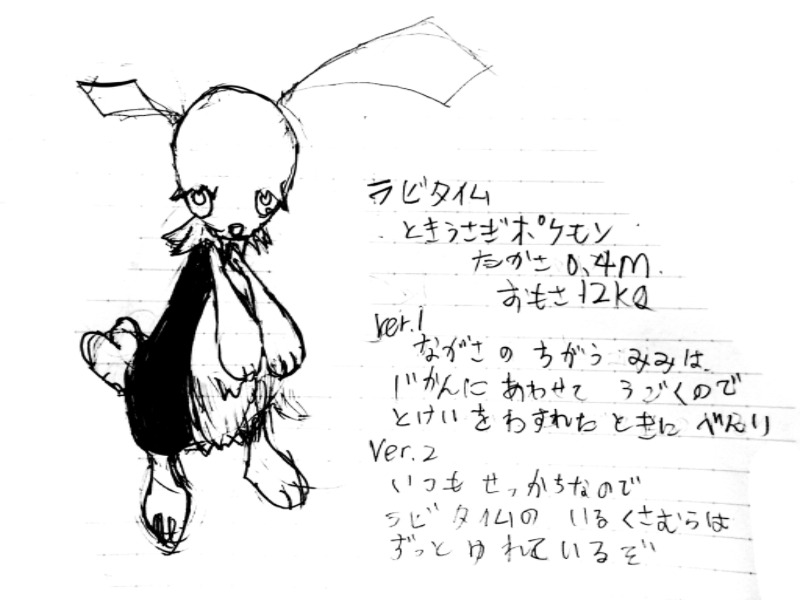 ラビタイム
ときうさぎポケモン
たかさ 0.4M
おもさ 12KG
ver.1
ながさの ちがう みみは
じかんに あわせて うごくので
とけいを わすれた ときに べんり
Ver.2
いつも せっかちなので
ラビタイムの いる くさむらは
ずっと ゆれているぞ